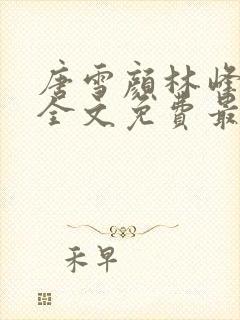 唐雪颜林峰
全文免费最
禾早